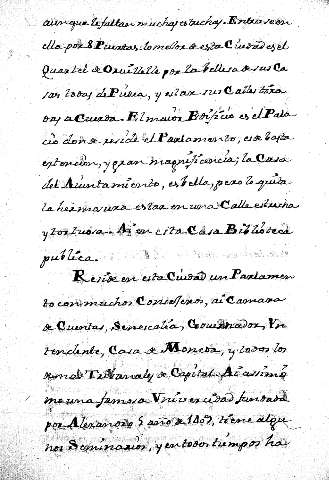 aunque le faltan muchas estuchas. Entrase en
ella por 8 Puertas: lo mejor de esta Ciudad es el
Quartel de por la bellesa de sus Ca
sas todas de Piedra, y estar sus Calles tira
das a Cuerda. El maior Edificio es el Pala
cio donde reside el Parlamento, es de basta
extencion, y gran magnificencia; la Casa
del Aiuntamiento, es bella, pero le quita
la hermosura estar en una Calle estrecha
y tortuosa. Ai en esta Casa Biblioteca
publica.
Reside en esta Ciudad un Parlamen
to con muchos Consejeros, ai Camara
de Cuentas, Senescalia, Governador, Yn
tendente, Casa de Moneda, y todos los
demas Tribunales de Capital. Ai assimis
mo una famosa Vniversidad fundada
por Alexandro 5 año de tiene algu
nos Seminarios, y en todos tiempos ha